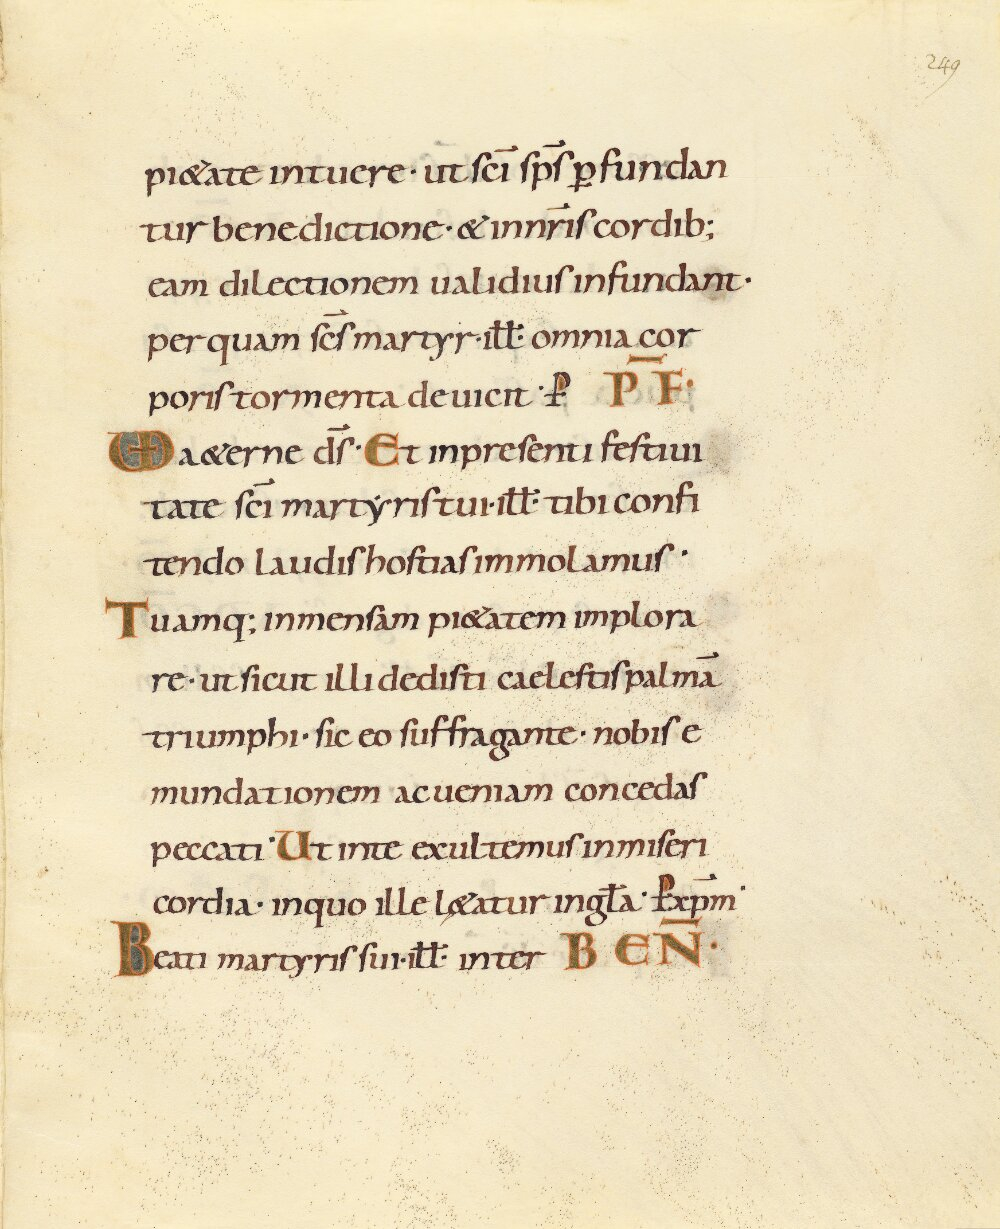 249
pi&ate intuere · ut scī sp̄s ꝑfundan
tur benedictione · & in nr̄is cordib;
eam dilectionem ualidius infundant ·
per quam sc̄s martyr · ill̄ · omnia cor
poris tormenta deuicit · P̄ P̄ F ·
Ma&erne d̄s · Et in presenti festiui
tate scī martyris tui · ill̄ · tibi confi
tendo laudis hostias immolamus ·
Tuamq; inmensam pi&atem implora
re · ut sicut illi dedisti caelestis palmā
triumphi · sic eo suffragante · nobis e
mundationem ac ueniam concedas
peccati · Ut in te exultemus in miseri
cordia · in quo ille l&atur in gl̄a · P xp̄m ·
Beati martyris sui · ill̄ · inter BEN̄ ·